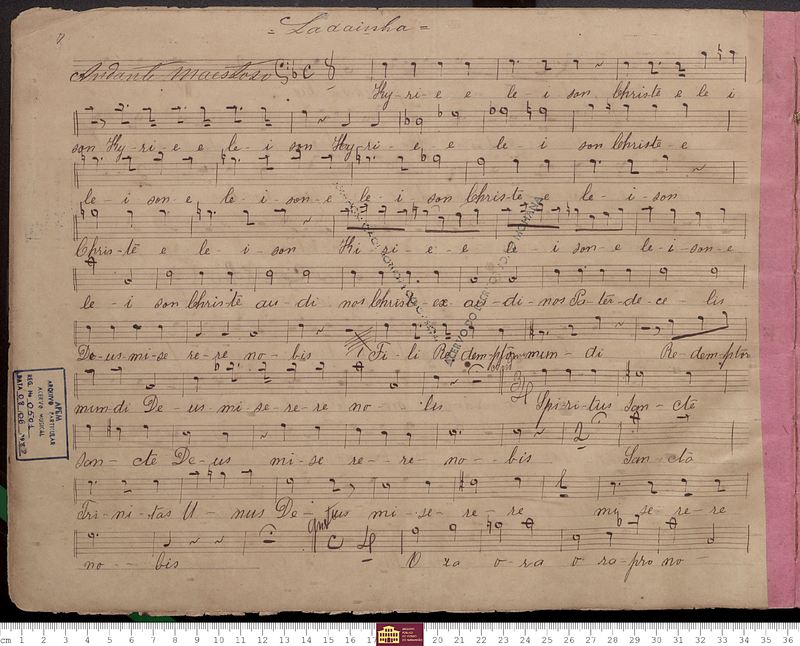 = Ladainha =
Andante Maestoso
Ky - ri - e e le - i son Christe e le i
son Ky - ri - e e le - i son Ky - ri - e - e le - i son Christe - e
le - i son - e le - i - son - e le - i son Christe e le - i - son
Chris - te e le - i - son Ki ri - e - e le - i son - e le - i - son - e
le - i son Christe au - di nos Christe - ex au - di - nos Pa - ter - de - ce - lis
De - us - mi - se re - re no - bis Fi - li Redemptor mun - di Redemptor
mundi De - us mi - se - re - re no - bis Spi - ri - tus San - cte
San - cte De - us mi - se re - re no - bis San - cta
Tri - ni - tas U - nus De - us mi - se - re - re mi se - re - re
no - bis O ra o - ra o ra - pro no -
APEM
ARQUIVO PARTICULAR
ACERVO MUSICAL
REG. Nº 0501
cm 1 2 3 4 5 6 7 8 9 10 11 12 13 14 15 16 17 20 21 22 23 24 25 26 27 28 29 30 31 32 33 34 35 36